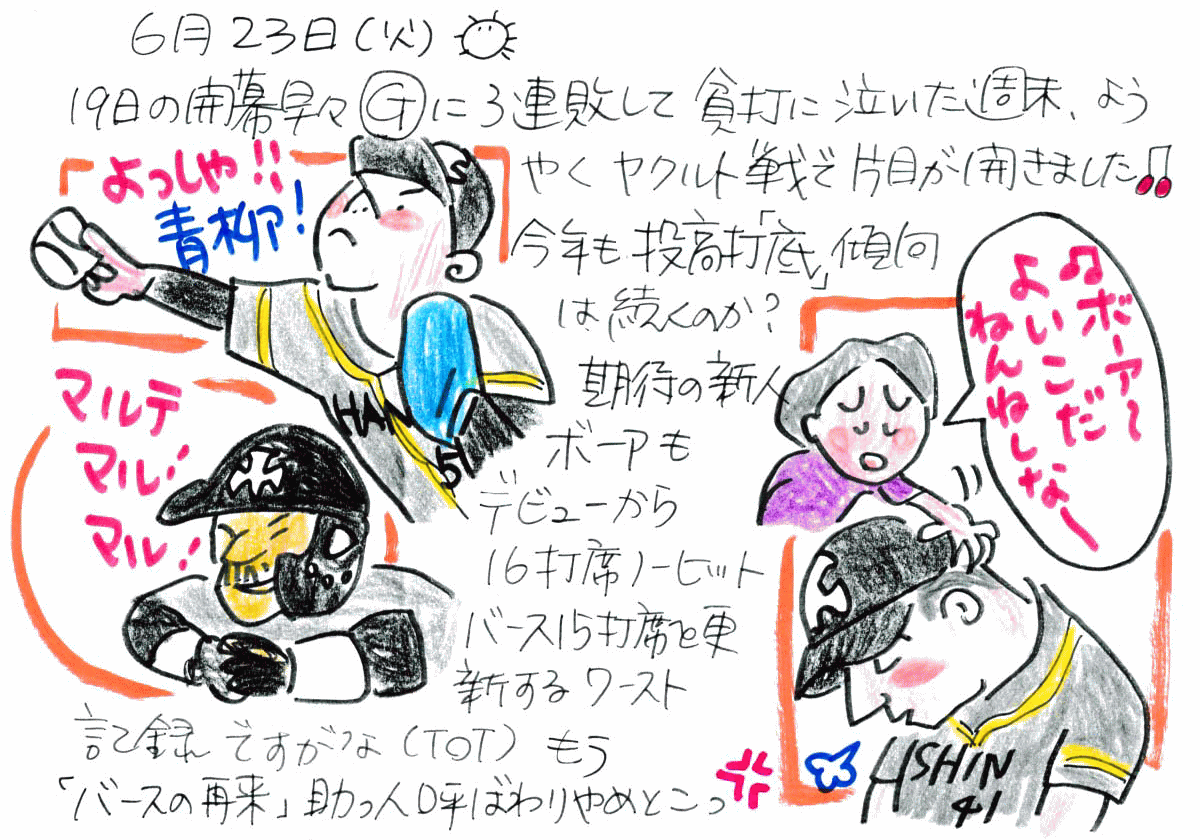 6月23日(火)
19日の開幕早々Ⓖに3連敗して貧打に泣いた週末、よう
やくヤクルト戦で片目が開きました♫
今年も「投高打底」傾向
は続くのか?
期待の新人
ボーアも
デビューから
16打席ノーヒット
バース15打席を更
新するワースト
記録ですがな(TOT)もう
「バースの再来」助っ人呼ばわりやめとこっ
よっしゃ!!
青柳!
HAN
51
マルテ
マル!
マル!
♫ボーア〜
よいこだ
ねんねしな〜
SHIN
41